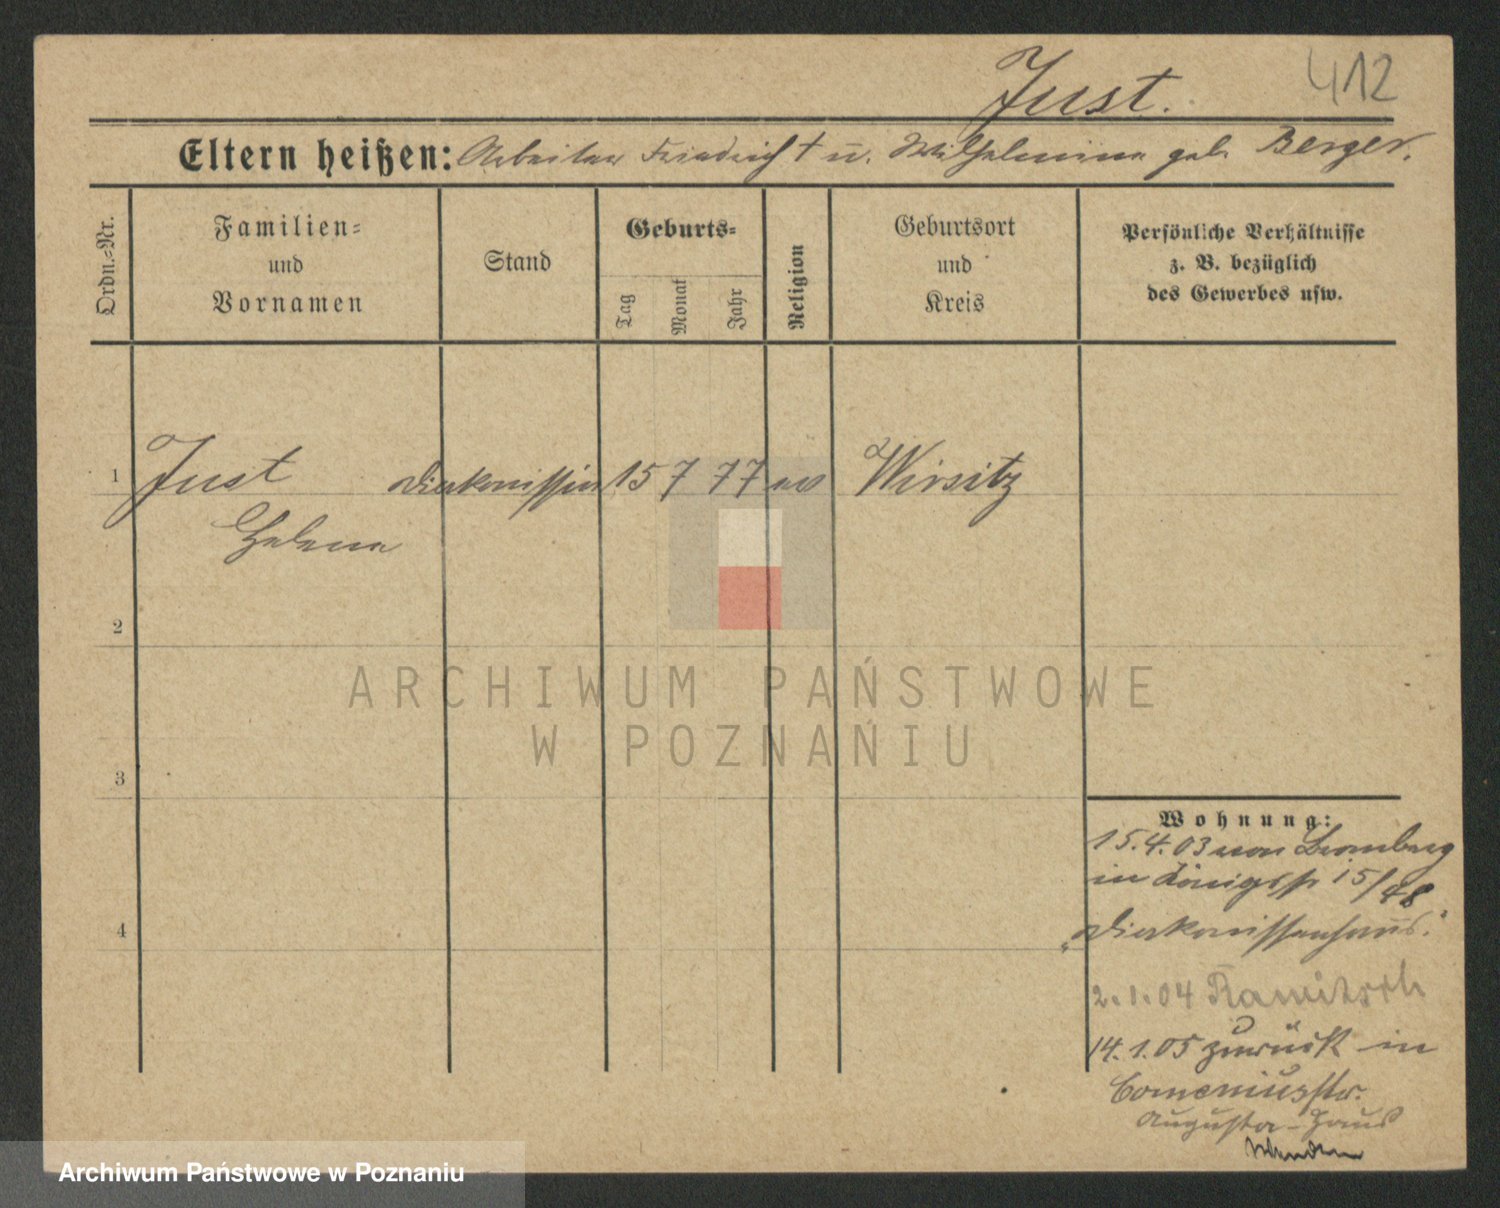 412
Just.
Eltern heißen: Arbeiter Friedrich † u. Wilhelmine geb. Berger.
Ordn.-Nr.
Familien- und Vornamen
Stand
Geburts-
Tag
Monat
Jahr
Religion
Geburtsort und Kreis
Persönliche Verhältnisse
z. B. bezüglich
des Gewerbes usw.
1 Just Diakonissin 15 7 77 ev Wirsitz
Helene
2
3
4
Wohnung:
15.4.03 von Bromberg
in Königsstr 15/48
„Diakonissenhaus."
2.1.04 Rawitsch
14.1.05 zurück in
Comeniusstr.
Augusta-Haus
ARCHIWUM PAŃSTWOWE
W POZNANIU
Archiwum Państwowe w Poznaniu